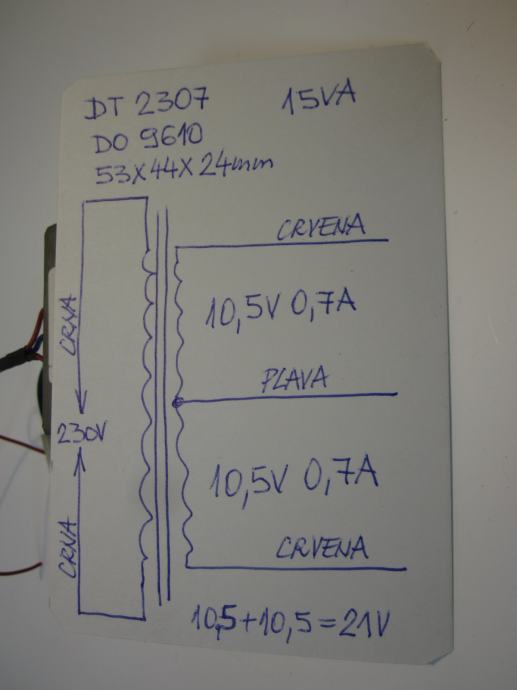 DT 2307 15VA
DO 9610
53X44X24mm
CRVENA
CRNA
10,5V 0,7A
PLAVA
230V
10,5V 0,7A
CRNA
CRVENA
10,5+10,5=21V